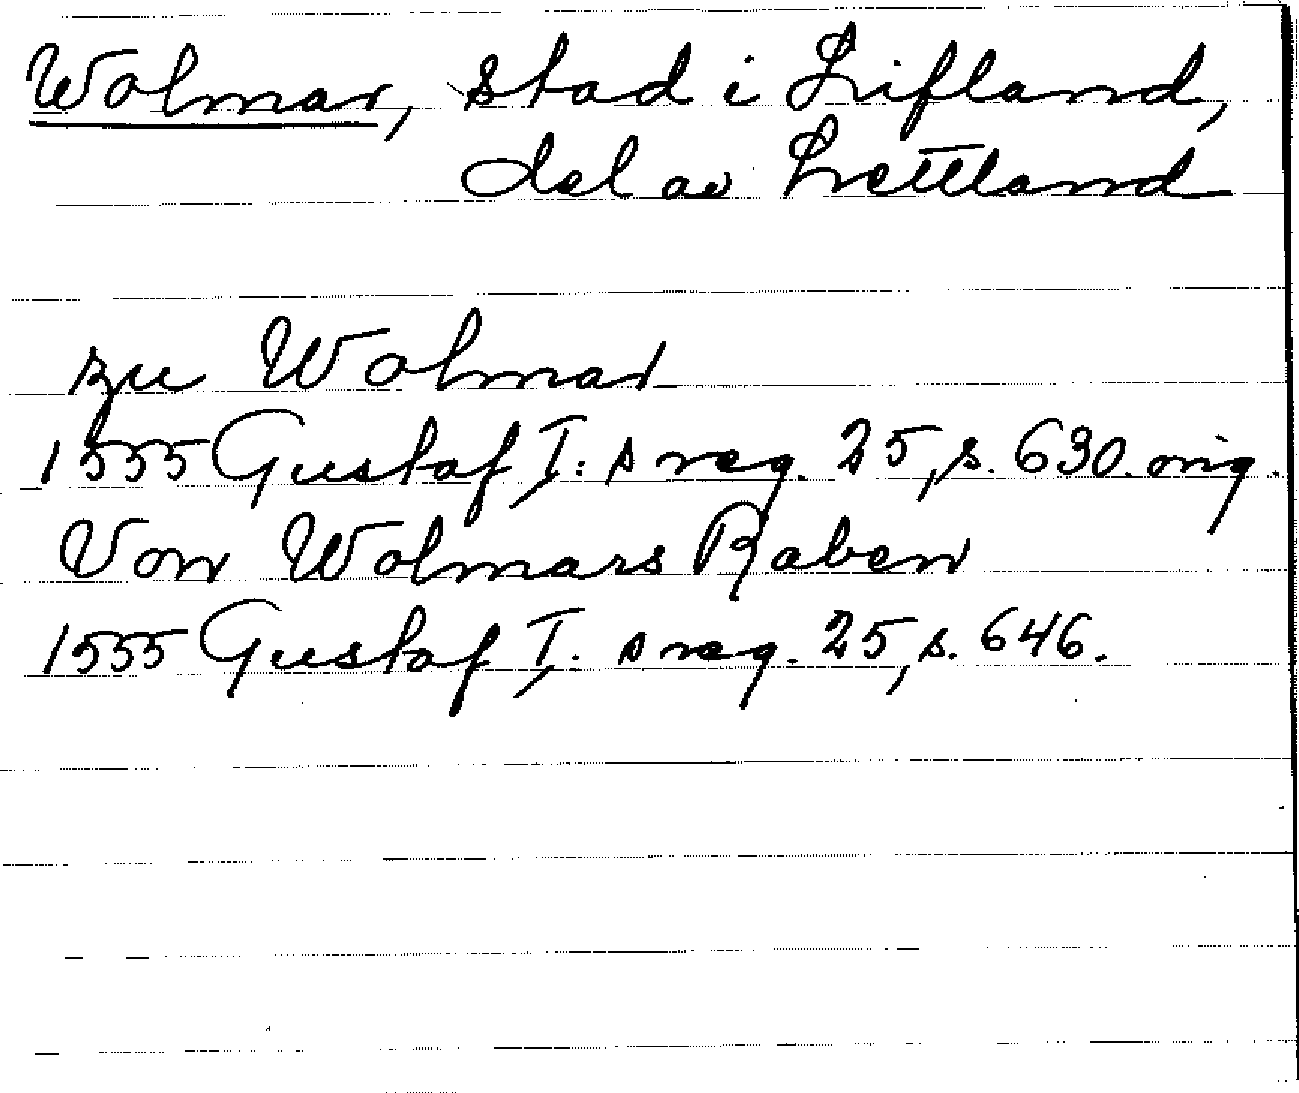 Wolmar, stad i Lifland,
del av Lettland
zu Wolmar
1555 Gustaf I: s reg. 25, s. 630. orig.
Von Wolmars Raben
1555 Gustaf I: s reg. 25, s. 646.